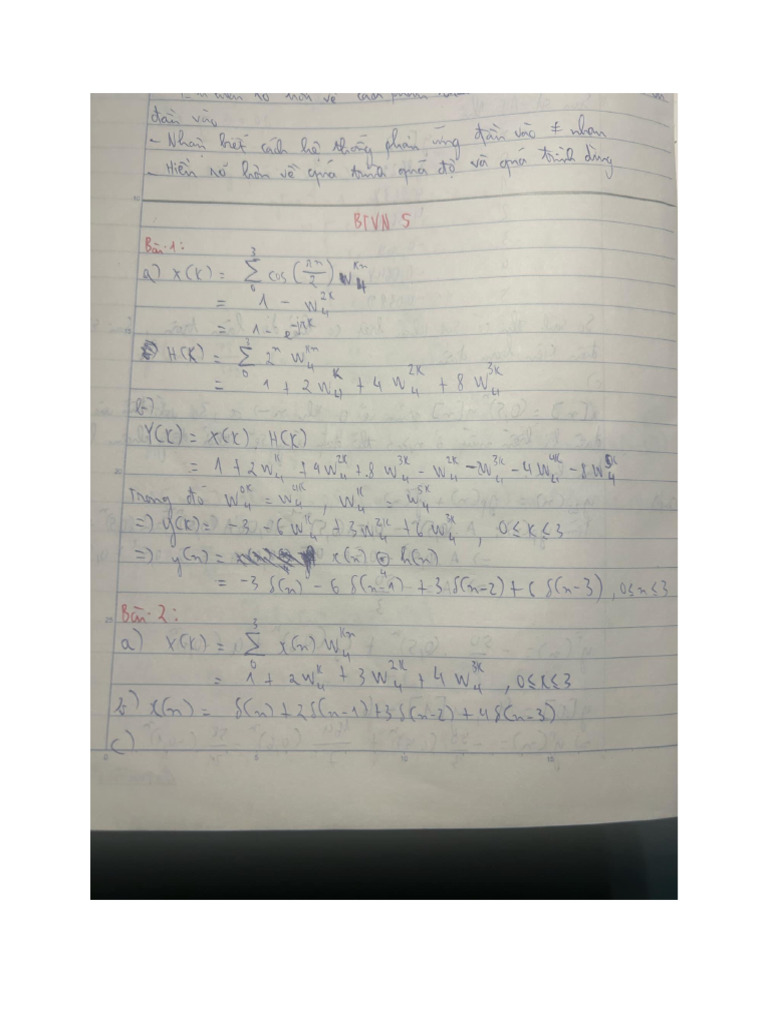 đầu vào
- Nhận biết cách hệ thống phản ứng đầu vào ≠ nhau
- Hiển rõ hơn về quá trình quá độ và quá trình dừng
BTVN 5
Bài 1:
a) X(K) = ∑₀³ cos(πn/2) W₄^{Kn}
= 1 - W₄^{2K}
= 1 - e^{-jπK}
H(K) = ∑₀³ 2ⁿ W₄^{Kn}
= 1 + 2W₄^{K} + 4W₄^{2K} + 8W₄^{3K}
b)
Y(K) = X(K).H(K)
= 1 + 2W₄^{1K} + 4W₄^{2K} + 8W₄^{3K} - W₄^{2K} - 2W₄^{3K} - 4W₄^{4K} - 8W₄^{5K}
Trong đó W₄^{0K} = W₄^{4K}, W₄^{1K} = W₄^{5K}
=> Y(K) = -3 - 6W₄^{1K} + 3W₄^{2K} + 6W₄^{3K}, 0≤K≤3
=> y(n) = x(n) ⊙₄ h(n)
= -3δ(n) - 6δ(n-1) + 3δ(n-2) + 6δ(n-3), 0≤n≤3
Bài 2:
a) X(K) = ∑₀³ x(n) W₄^{Kn}
= 1 + 2W₄^{K} + 3W₄^{2K} + 4W₄^{3K}, 0≤K≤3
b) x(n) = δ(n) + 2δ(n-1) + 3δ(n-2) + 4δ(n-3)
c)
0 5 10 15